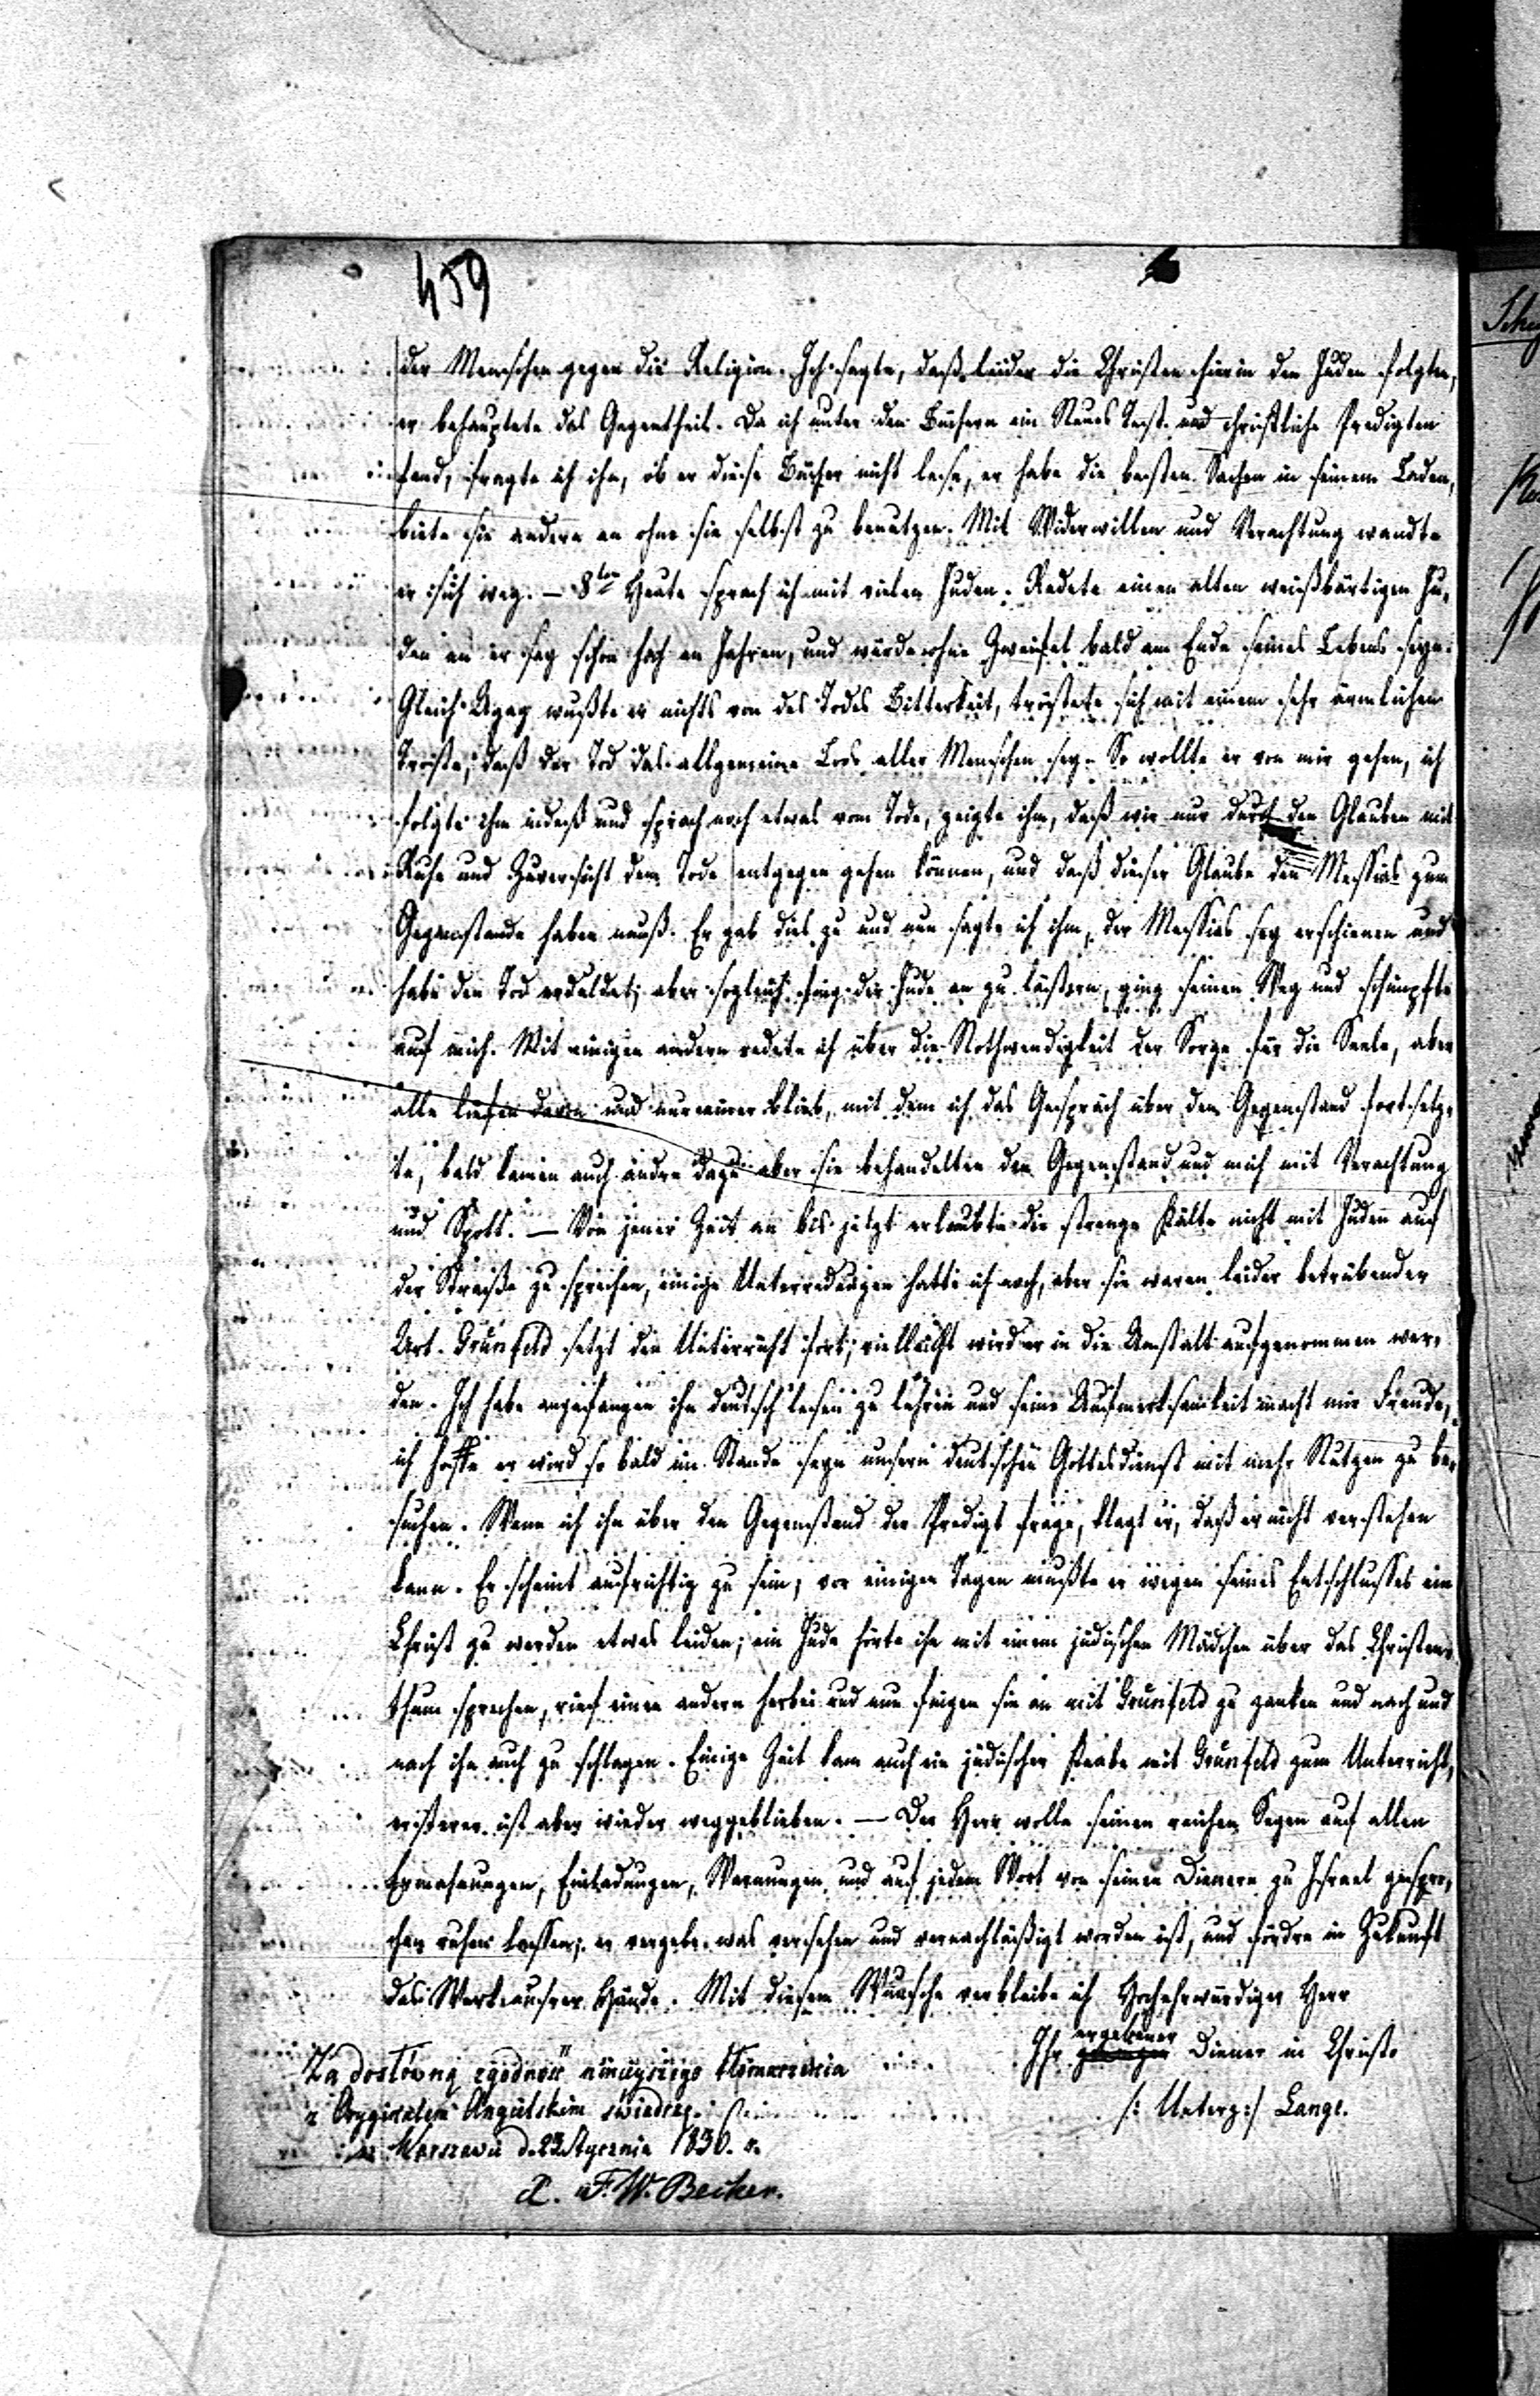 459
der Menschen gegen die Religion. Ich sagte, daß leider die Christen hierin den Juden folgten,
er behauptete das Gegentheil. Da ich unter den Büchern ein Neues Test. und christliche Predigten
fand, fragte ich ihn, ob er diese Bücher nicht lese, er habe die besten Sachen in seinem Laden,
biete sie andern an ohne sie selbst zu benutzen. Mit Widerwillen und Verachtung wandte
er sich weg. – 8ten Heute sprach ich mit vielen Juden. Redete einen alten weißbärtigen Ju-
den an er sey schon hoch an Jahren, und würde ohne Zweifel bald am Ende seines Lebens seyn.
Gleich Agag wußte er nichts von des Todes Bitterkeit, tröstete sich mit einem sehr ärmlichen
Troste, daß der Tod das allgemeine Loos aller Menschen sey. So wollte er von mir gehen, ich
folgte ihm indeß und sprach noch etwas vom Tode, zeigte ihm, daß wir nur durch den Glauben mit
Ruhe und Zuversicht dem Tode entgegen gehen können, und daß dieser Glaube den Messias zum
Gegenstande haben muß. Er gab dies zu und nun sagte ich ihm, der Messias sey erschienen und
habe den Tod erduldet; aber sogleich fing der Jude an zu lästern, ging seinen Weg und schimpfte
auf mich. Mit einigen andern redete ich über die Nothwendigkeit der Sorge für die Seele, aber
alle liefen davon und nur einer blieb, mit dem ich das Gespräch über den Gegenstand fortsetz-
te, bald kamen auch andre dazu aber sie behandelten den Gegenstand und mich mit Verachtung
und Spott. – Von jener Zeit an bis jetzt erlaubte die strenge Kälte nicht mit Juden auf
der Straße zu sprechen, einige Unterredungen hatte ich noch, aber sie waren leider betrübender
Art. Grünfeld setzt den Unterricht fort; vielleicht wird er in die Anstalt aufgenommen wer-
den. Ich habe angefangen ihn deutsch lesen zu lehren und seine Aufmerksamkeit macht mir Freude,
ich hoffe er wird so bald im Stande seyn unsern deutschen Gottesdienst mit mehr Nutzen zu be-
suchen. Wenn ich ihn über den Gegenstand der Predigt frage, klagt er, daß er nicht verstehen
kann. Er scheint aufrichtig zu sein; vor einigen Tagen mußte er wegen seines Entschlusses ein
Christ zu werden etwas leiden; ein Jude hörte ihn mit einem jüdischen Mädchen über das Christen-
thum sprechen, rief einen andern herbei und nun fingen sie an mit Grünfeld zu zanken und nach und
nach ihn auch zu schlagen. Einige Zeit kam auch ein jüdischer Knabe mit Grünfeld zum Unterricht,
ersterer ist aber wieder weggeblieben. – Der Herr wolle seinen reichen Segen auf allen
Ermahnungen, Einladungen, Warnungen und auf jedem Wort von seinen Dienern zu Israel gespro-
chen ruhen lassen; er vergebe was versehen und vernachläßigt worden ist, und fördre in Zukunft
das Werk unsrer Hände. Mit diesem Wunsche verbleibe ich Hochehrwürdiger Herr
Ihr ergebener Diener in Christo
/: Unterz :/ Lange.
Za dosłowną zgodność ninieyszego tłomaczenia
z Oryginałem Angielskim świadczę.
Warszawie d. 23 Stycznia 1830. r.
X. F. W. Becker.